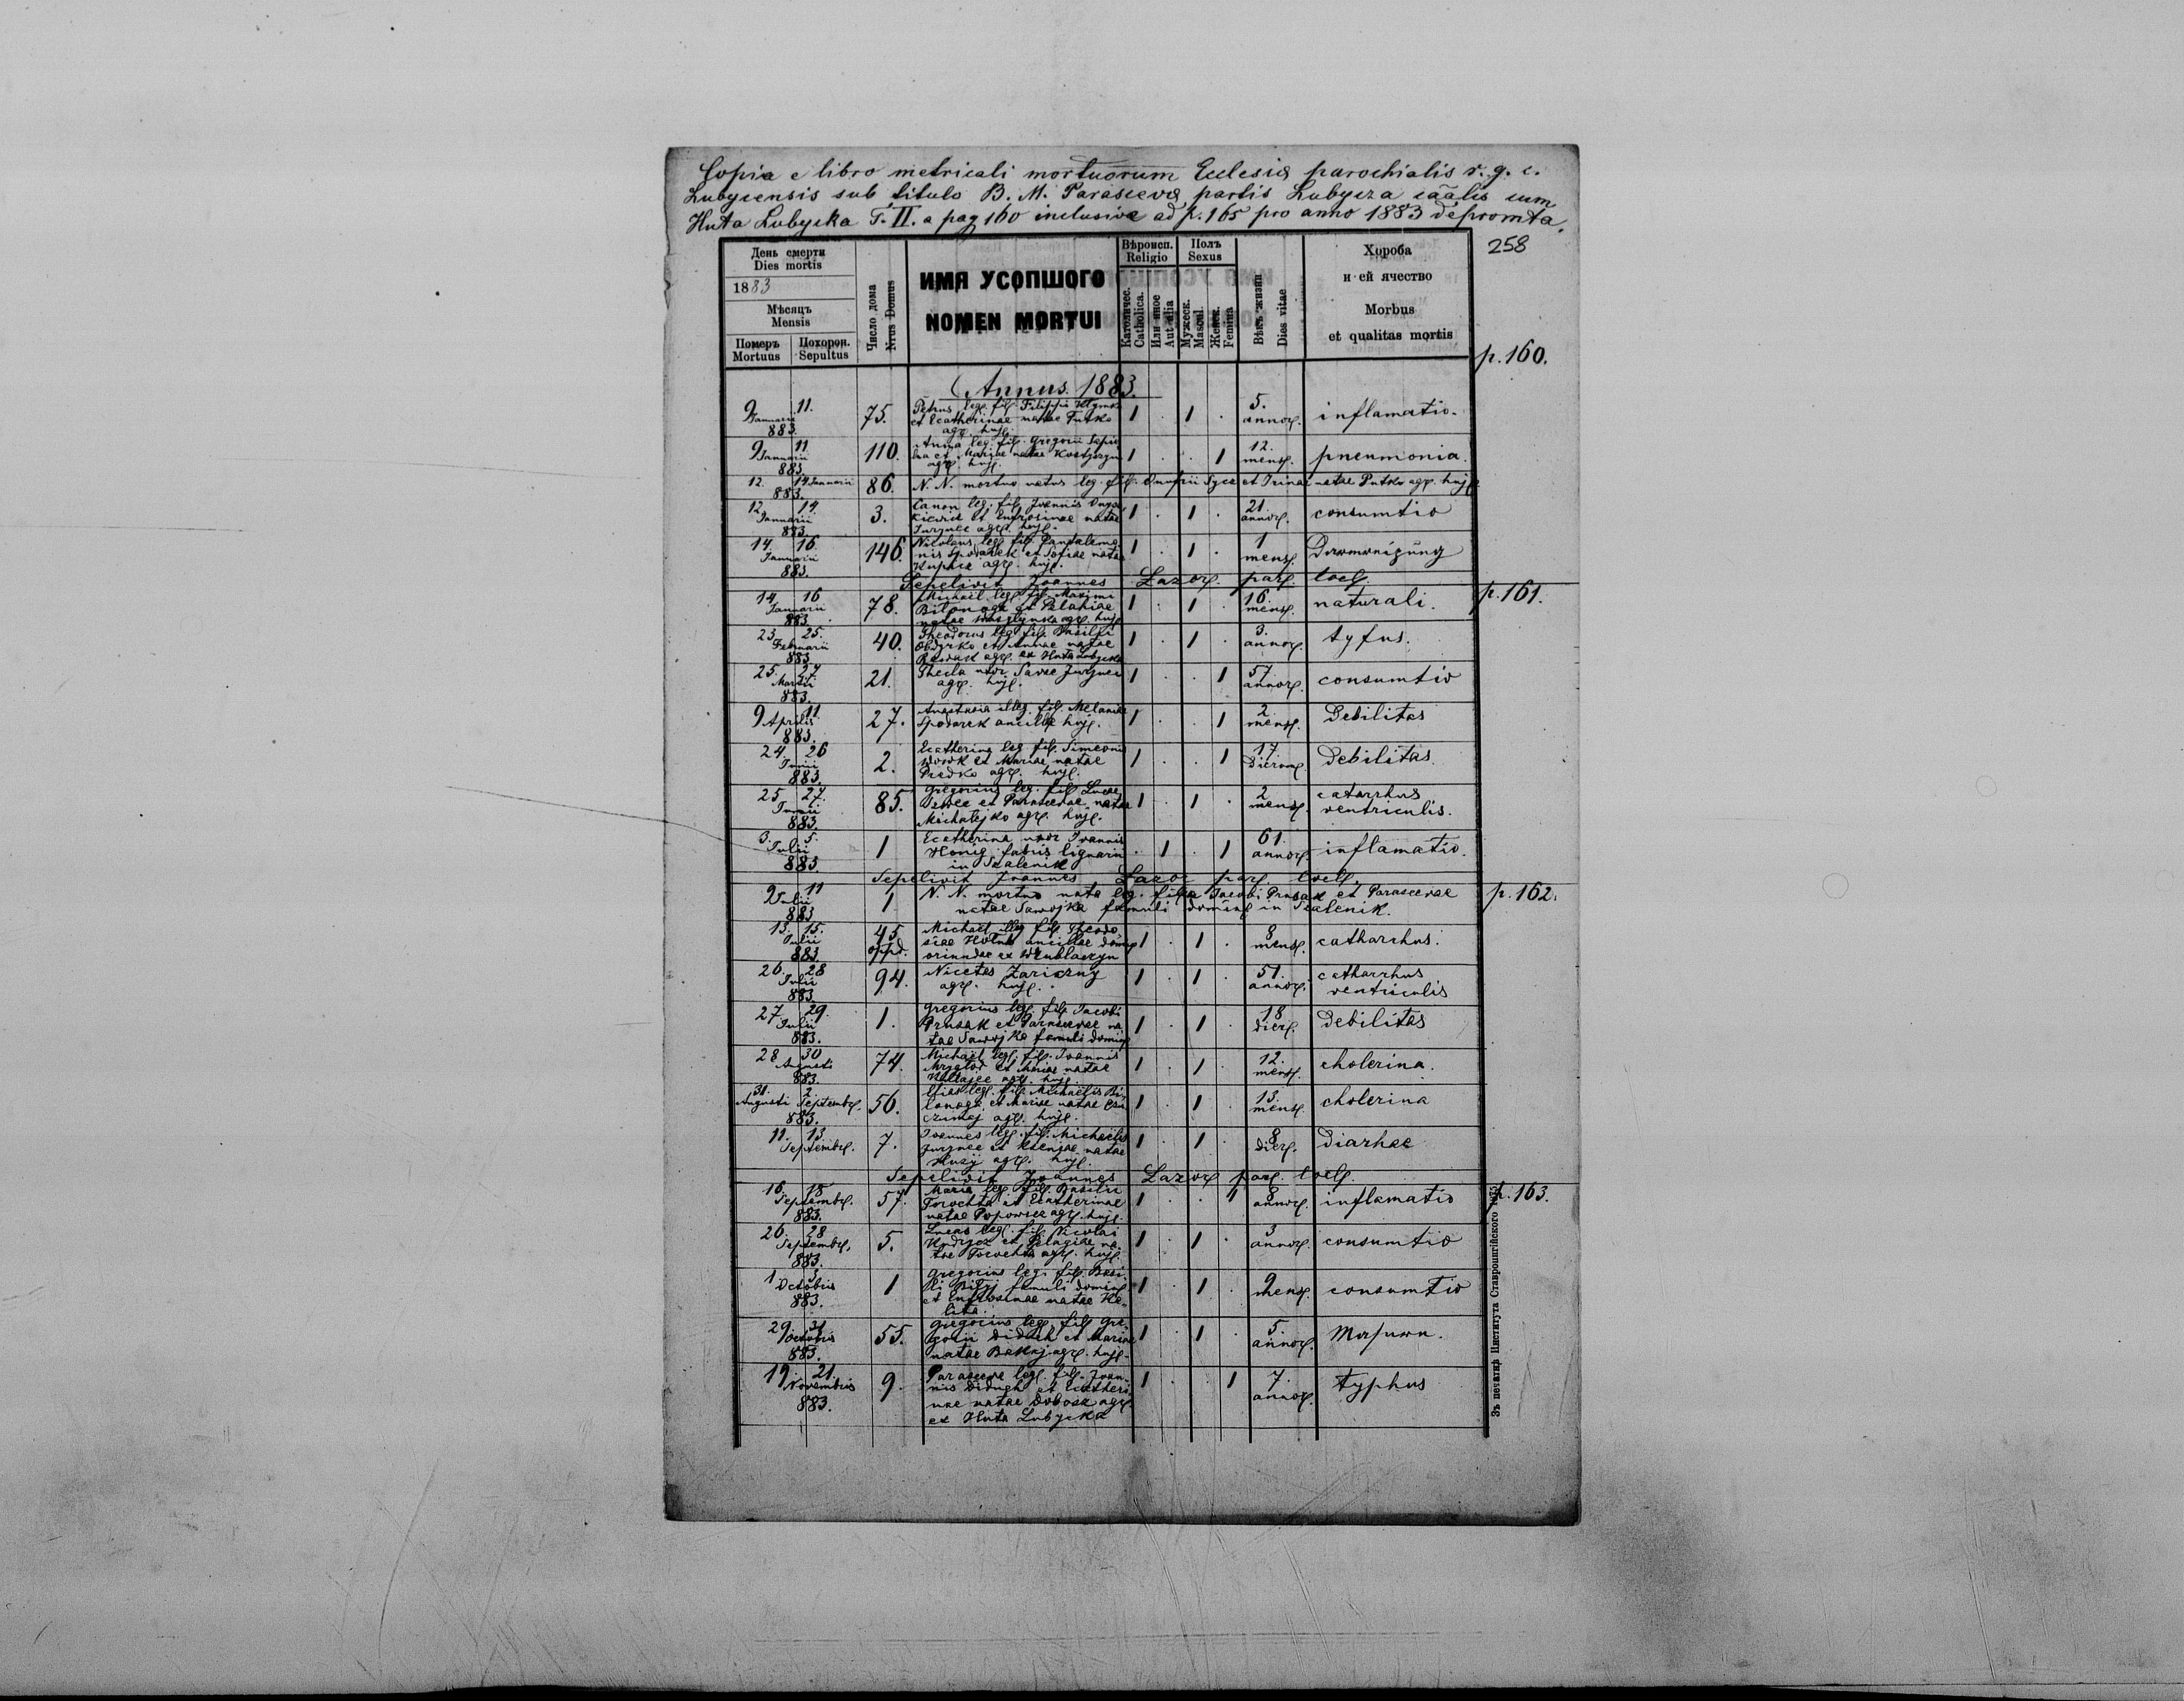 Copia e libro metricali mortuorum Eclesiæ parochialis r. g. c.
Lubycensis sub titulo B. M. Parascevæ partis Lubycza cãalis cum
Huta Lubycka T. II. a pag 160 inclusive ad p. 165 pro anno 1883 depromta.
258
День смерти
Dies mortis
1883
Мѣсяцъ
Mensis
Померъ
Mortuus
Похорон.
Sepultus
Число дома
Nrus Domus
ИМЯ УСОПШОГО
NOMEN MORTUI
Вѣроисп.
Religio
Католичес.
Catholica.
Или иное
Aut alia
Полъ
Sexus
Мужеск.
Mascul.
Женск.
Femina
Вѣкъ жизни
Dies vitae
Хороба
и ей ячество
Morbus
et qualitas mortis
p. 160.
Annus 1883.
9 11. Januarii 883. 75. Petrus leg. fil. Filippi
et Ecatherinae natae Futko
agr. huj. 1 . 1 . 5. annor. inflamatio.
9 11 Januarii 883. 110. Anna leg. fil. Gregorii
et Mariae natae
agr. huj. 1 . . 1 12. mens. pneumonia.
12. 14 Januarii 883. 86. N. N. mortuo natus leg. fil. Onufrii Syca et Irinae natae Putko agr. huj.
12. 14. Januarii 883 3. Canon leg. fil. Joannis
et Eufrosinae natae
Jurynec agr. huj. 1 . 1 . 21. annor. consumtio
14. 16. Januarii 883. 146. Nicolaus leg. fil. Pantalemo
nis Spodarek et Sofiae natae
agr. huj. 1 . 1 . 1 mens.
Sepelivit Joannes Lazor. par. loci.
p. 161.
14 16 Januarii 883 78. Michail leg. fil. Maximi
Bilonoga et Pelahiae
natae agr. huj. 1 . 1 . 16. mens. naturali.
23 25. Februarii 883 40. Theodorus leg. fil. Basilii
Obdyrko et Annae natae
agr. ex Huta Lubycka 1 . 1 . 3. annor. tyfus.
25. 27. Martii 883. 21. Thecla uxor Savae Jurynec
agr. huj. 1 . . 1 57 annor. consumtio
9 11 Aprilis 883. 27. Anastasia illeg. fil. Melaniae
Spodarek ancillae huj. 1 . . 1 2 mens. Debilitas
24. 26 Junii 883. 2. Ecatherina leg. fil. Simeonis
Wowk et Mariae natae
Predko agr. huj. 1 . . 1 17. dierum. Debilitas.
25 27. Junii 883. 85. Gregorius leg. fil. Lucae
et Parascevae natae
Michalejko agr. huj. 1 . 1 . 2 mens. catarrhus
ventriculis.
3. 5. Julii 883 1 Ecatherina uxor Ivannis
Honig fabris lignarii
in Szalenik . 1 . 1 61. annor. inflamatio.
Sepelivit Joannes Lazor par. loci.
p. 162.
9 11 Julii 883 1 N. N. mortuo nata leg. filia Jacobi Prusak et Parascevae
natae Sawojka famuli domin. in Szalenik.
13. 15. Julii 883 45 oppd. Michael illeg. fil. Theodo
siae Hotub ancillae domin.
oriundae ex Wrublaczyn 1 . 1 . 8 mens. catharrhus.
26. 28 Julii 883. 94. Nicetas Zariczny
agr. huj. 1 . 1 . 51. annor. catharrhus
ventriculis
27. 29. Julii 883. 1. Gregorius leg. fil. Jacobi
Prusak et Parascevae na
tae Sawojka famuli domin. 1 . 1 . 18 dier. Debilitas
28 30 Augusti 883. 74. Michael leg. fil. Ivannis
Mryglod et Mariae natae
agr. huj. 1 . 1 . 12. mens. cholerina.
31. 2. Augusti Septembr. 883. 56. Elias leg. fil. Michaelis Bi,
lonoga, et Mariae natae
agr. huj. 1 . 1 . 13. mens. cholerina
11. 13. Septembr. 7. Ioannes leg. fil. Michaelis
Jurynec et natae
agr. huj. 1 . 1 . 8 dier. Diarhae
Sepelivit Joannes Lazor par. loci.
p. 163.
16. 18 Septembr. 883. 57. Maria leg. fil. Basilii
Torochta et Ecatherinae
natae Popowicz agr. huj. 1 . . 1 8 annor. inflamatio
26. 28 Septembr. 883. 5. Lucas leg. fil. Nicolai
Hudycz et Pelagiae na,
tae Torochta agr. huj. 1 . 1 . 3 annor. consumtio
1 3 Octobris 883. 1 Gregorius leg. fil. Basi,
li Bilyj famuli domin.
et Eufrosinae natae
1 . 1 . 9 mens. consumtio
29. 31 Octobris 883. 55. Gregorius leg. fil. Gre,
gorii Diduch et Mariae
natae Bakaj agr. huj. 1 . 1 . 5. annor.
19. 21. Novembris 883. 9. Parasceva leg. fil. Joan,
nis Diduch et Ecatheri
nae natae Dobosz agr.
ex Huta Lubycka 1 . . 1 7. annor. typhus
Зъ печатнѣ Института Ставропигійского 1875